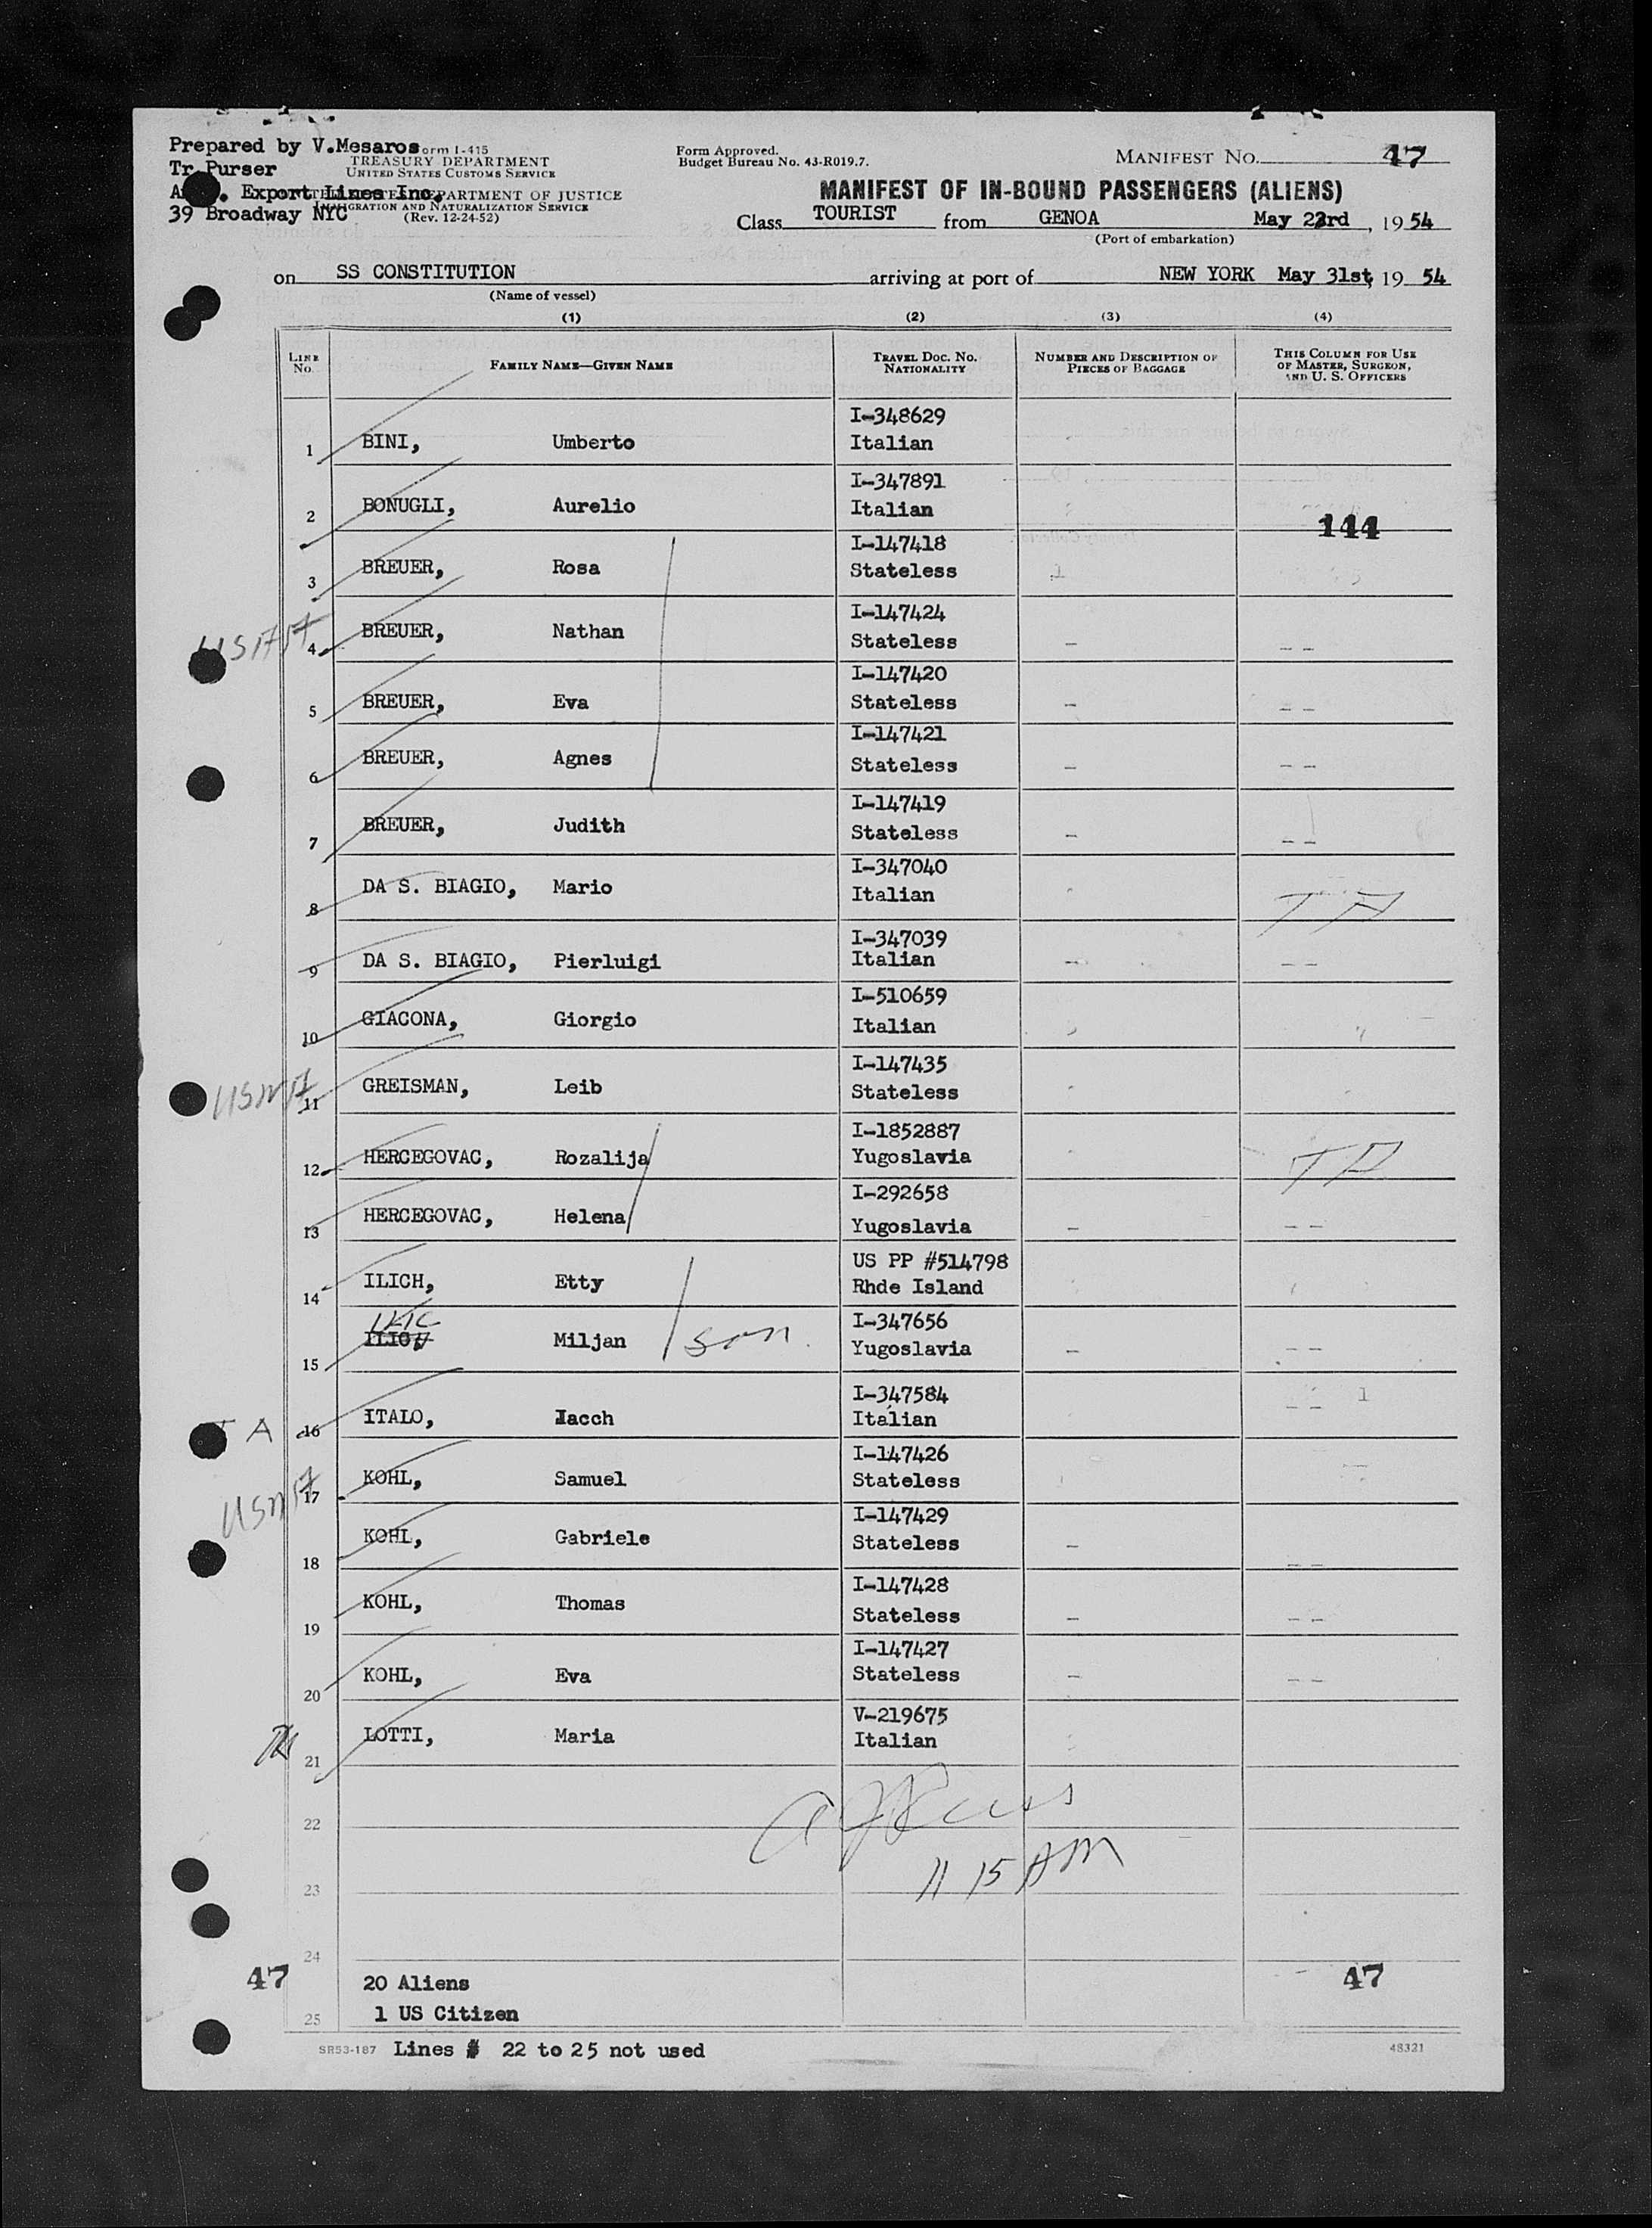 Prepared by V.Mesaros orm I-415
Tr Purser TREASURY DEPARTMENT
UNITED STATES CUSTOMS SERVICE
Export Lines Inc, PARTMENT OF JUSTICE
39 Broadway NYC GRATION AND NATURALIZATION SERVICE
(Rev. 12-24-52)
Form Approved.
Budget Bureau No. 43-R019.7.
MANIFEST NO. 47
MANIFEST OF IN-BOUND PASSENGERS (ALIENS)
Class TOURIST from GENOA May 23rd, 19 54
(Port of embarkation)
on SS CONSTITUTION arriving at port of NEW YORK May 31st, 19 54
(Name of vessel)
(1) (2) (3) (4)
LINE No. FAMILY NAME—GIVEN NAME TRAVEL DOC. NO. NATIONALITY NUMBER AND DESCRIPTION OF PIECES OF BAGGAGE THIS COLUMN FOR USE OF MASTER, SURGEON, AND U. S. OFFICERS
I-348629
1 BINI, Umberto Italian
I-347891
2 BONUGLI, Aurelio Italian
144
I-147418
3 BREUER, Rosa Stateless
I-147424
4 BREUER, Nathan Stateless – – –
I-147420
5 BREUER, Eva Stateless – – –
I-147421
6 BREUER, Agnes Stateless – – –
I-147419
7 BREUER, Judith Stateless – – –
I-347040
8 DA S. BIAGIO, Mario Italian TA
I-347039
9 DA S. BIAGIO, Pierluigi Italian – – –
I-510659
10 GIACONA, Giorgio Italian
I-147435
USNA 11 GREISMAN, Leib Stateless
I-1852887
12 HERCEGOVAC, Rozalija Yugoslavia TA
I-292658
13 HERCEGOVAC, Helena Yugoslavia – – –
US PP #514798
14 ILICH, Etty Rhde Island
ILIC I-347656
15 ILICH, Miljan son Yugoslavia – – –
I-347584
A 16 ITALO, Iacch Italian – – 1
I-147426
USNA 17 KOHL, Samuel Stateless
I-147429
18 KOHL, Gabriele Stateless – – –
I-147428
19 KOHL, Thomas Stateless – – –
I-147427
20 KOHL, Eva Stateless – – –
V-219675
21 LOTTI, Maria Italian
22
11 15 AM
23
24
47 20 Aliens 47
1 US Citizen
25
SR53-187 Lines # 22 to 25 not used 48321